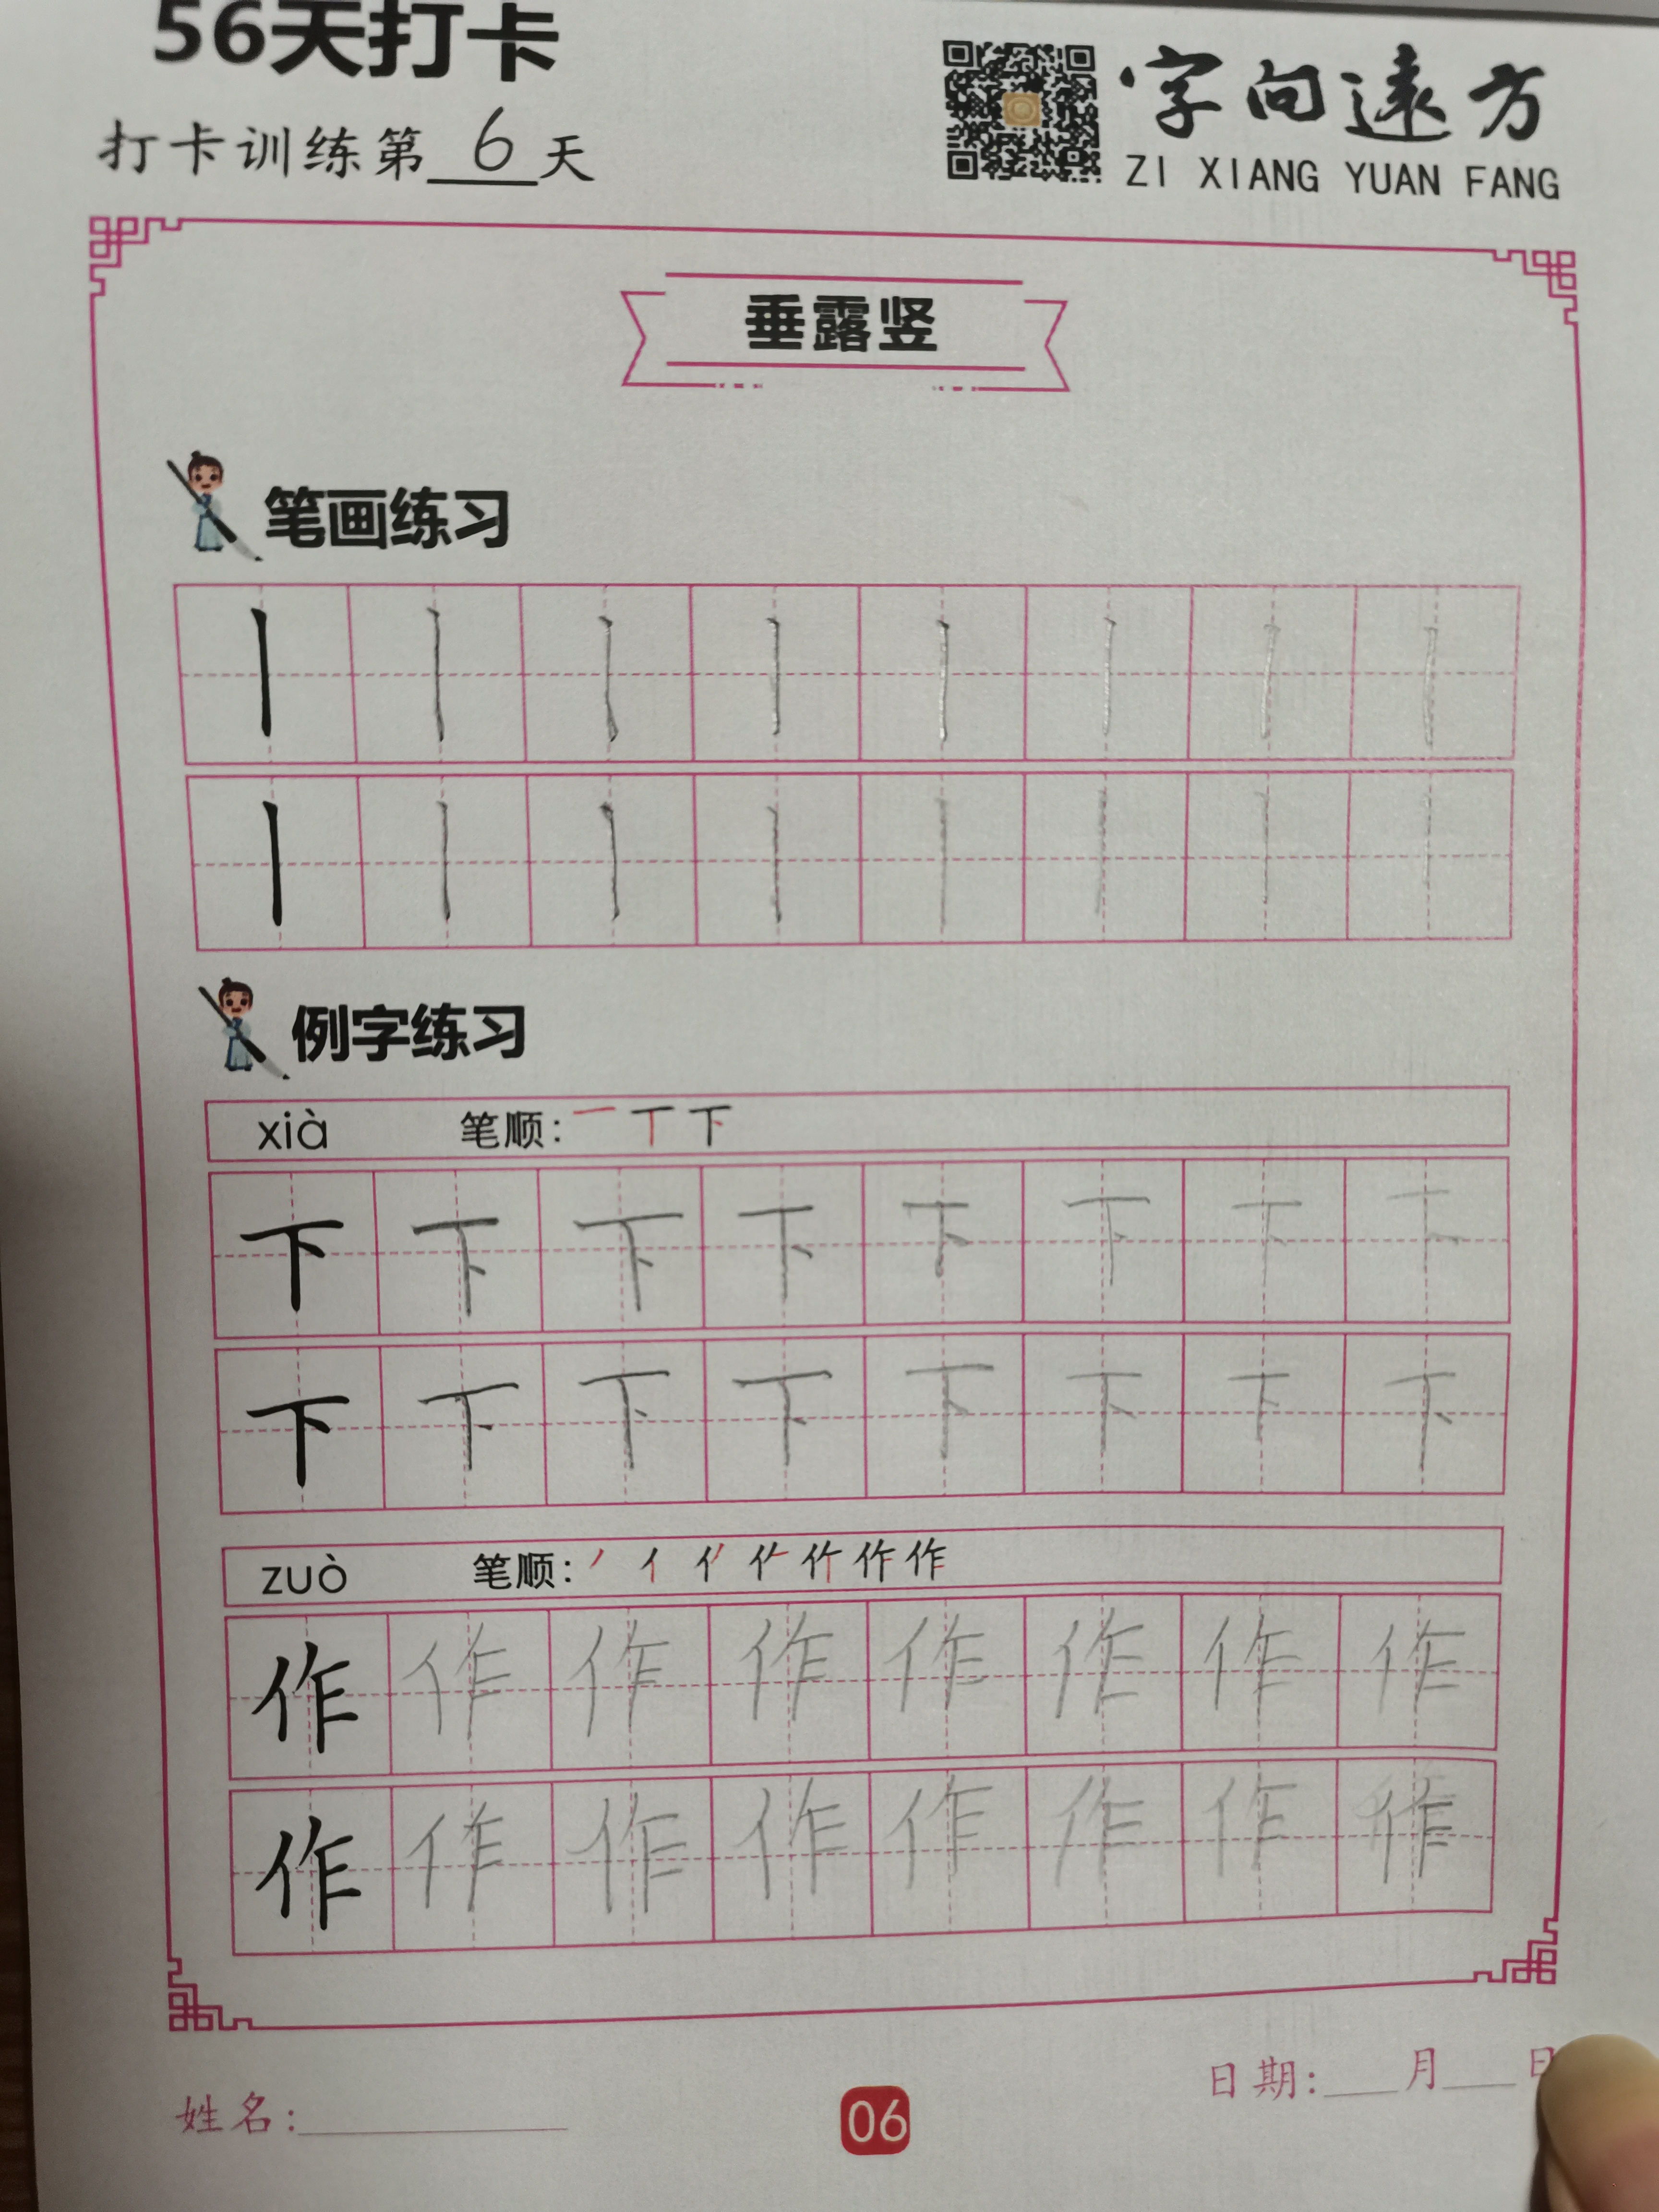 56天打卡
打卡训练第 6 天
字向遠方
ZI XIANG YUAN FANG
垂露竖
笔画练习
丨 丨 丨 丨 丨 丨 丨 丨
丨 丨 丨 丨 丨 丨 丨 丨
例字练习
xià 笔顺: 一 丅 下
下 下 下 下 下 下 下 下
下 下 下 下 下 下 下 下
zuò 笔顺: 作
作 作 作 作 作 作 作 作
作 作 作 作 作 作 作 作
姓名: 日期: 月 日
06